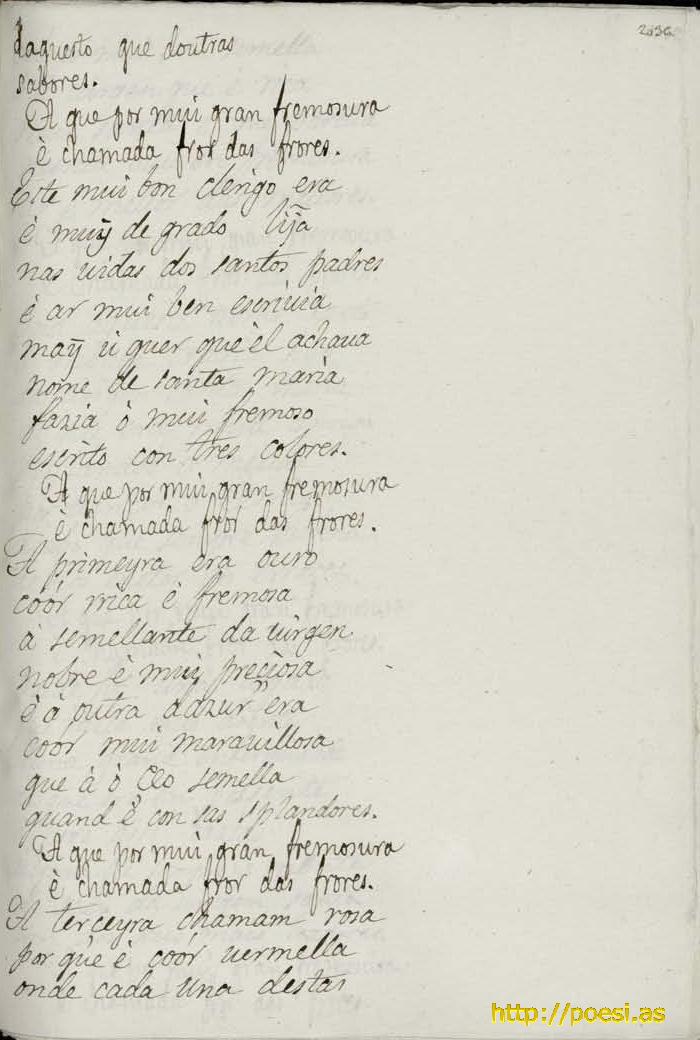 daquesto que doutras
sabores.
A que por mui gran fremosura
è chamada fror das frores.
Este mui bon clerigo era
è muy de grado lijã
nas uidas dos santos padres
è ar mui ben escriuia
may ù quer que èl achaua
nome de santa maria
fazia ò mui fremoso
escrito con tres colores.
A que por mui gran fremosura
è chamada fror das frores.
A primeyra era ouro
coór rrica è fremosa
à semellante da uirgen
nobre è muy preçiosa
è à outra dazur era
coór mui marauillosa
que à ò çeo semella
quand è con sas splandores.
A que por mui gran fremosura
è chamada fror das frores.
A terceyra chamam rosa
por que è coór uermella
onde cada una destas
http://poesi.as